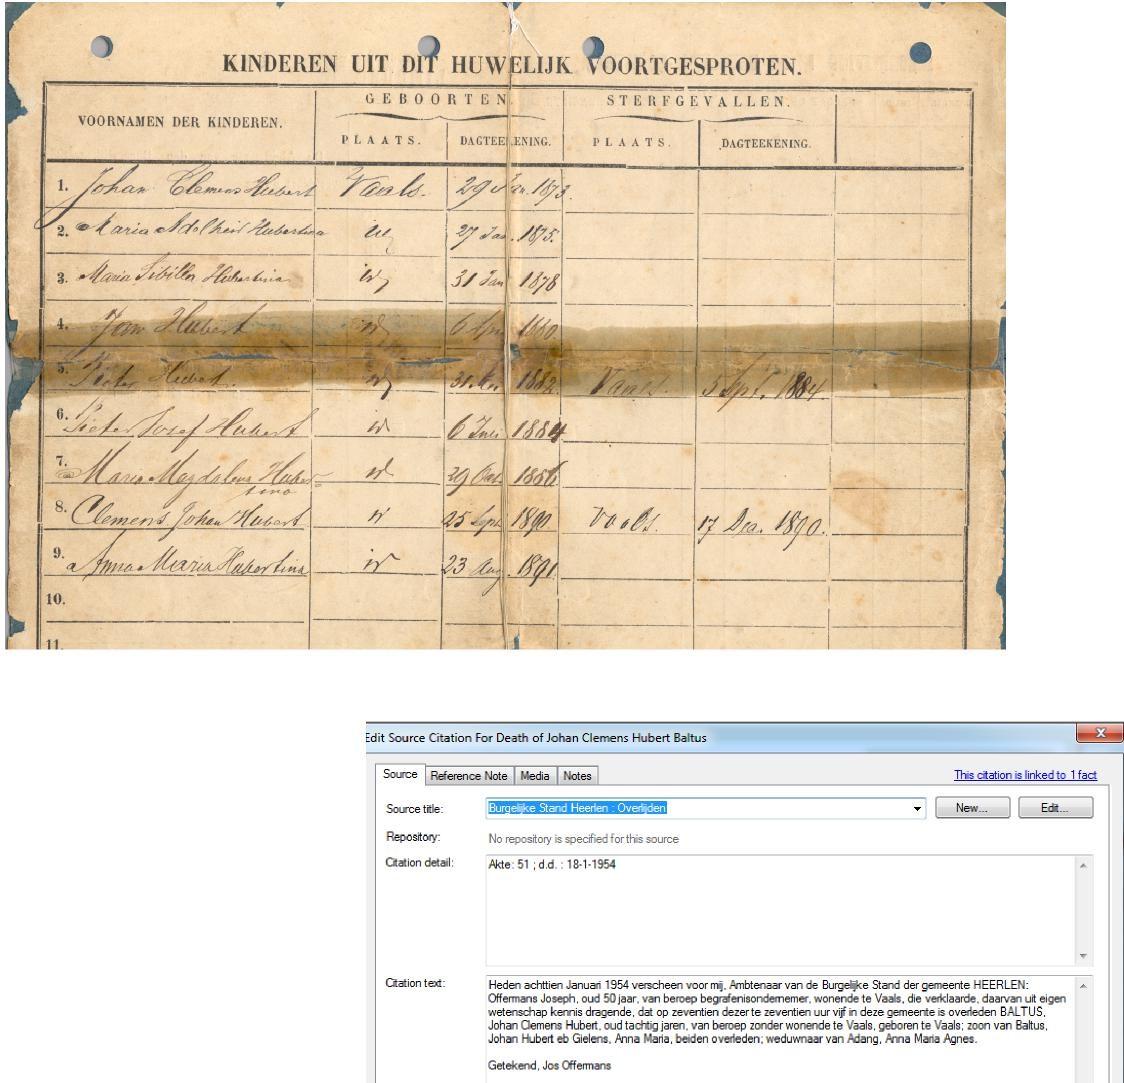 KINDEREN UIT DIT HUWELIJK VOORTGESPROTEN.
VOORNAMEN DER KINDEREN. GEBOORTEN. STERFGEVALLEN.
PLAATS. DAGTEEKENING. PLAATS. DAGTEEKENING.
1. Johan Clemens Hubert Vaals. 29 Jan. 1873.
2. Maria Adelheid Hubertina 27 Jan. 1875.
3. Maria Sibilla Hubertina 31 Jan 1878
4. Jan Hubert 6 1880.
5. Pieter Hubert. 31 1882. Vaals. 5 Sept. 1884
6. Pieter Josef Hubert 6 1884
7. Maria Magdalena Huber-
tina 29 Oct. 1886
8. Clemens Johan Hubert 25 Sept. 1890. Vaals. 17 Dec. 1890.
9. Anna Maria Hubertina 23 Aug. 1891
10.
11.
Edit Source Citation For Death of Johan Clemens Hubert Baltus
Source Reference Note Media Notes This citation is linked to 1 fact
Source title: Burgelijke Stand Heerlen : Overlijden New... Edit...
Repository: No repository is specified for this source
Citation detail: Akte: 51 ; d.d. : 18-1-1954
Citation text: Heden achttien Januari 1954 verscheen voor mij, Ambtenaar van de Burgelijke Stand der gemeente HEERLEN:
Offermans Joseph, oud 50 jaar, van beroep begrafenisondernemer, wonende te Vaals, die verklaarde, daarvan uit eigen
wetenschap kennis dragende, dat op zeventien dezer te zeventien uur vijf in deze gemeente is overleden BALTUS,
Johan Clemens Hubert, oud tachtig jaren, van beroep zonder wonende te Vaals, geboren te Vaals; zoon van Baltus,
Johan Hubert eb Gielens, Anna Maria, beiden overleden; weduwnaar van Adang, Anna Maria Agnes.
Getekend, Jos Offermans